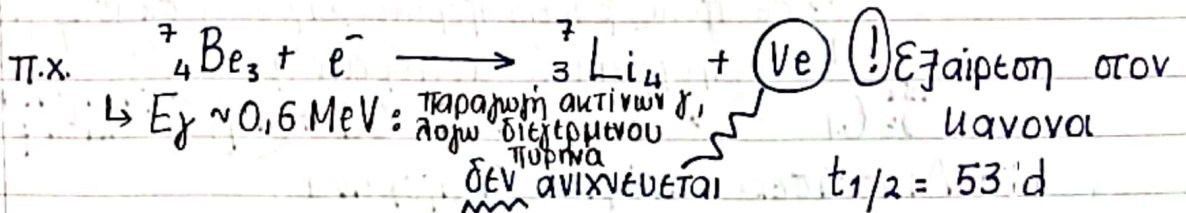 π.χ. ⁷₄Be₃ + e⁻ ⟶ ⁷₃Li₄ + νe ! Εξαίρεση στον
κανονα
↳ Eγ ~0,6 MeV: παραγωγή ακτίνων γ,
λογω διεγερμενου
πυρηνα
δεν ανιχνευεται
t1/2 = 53 d